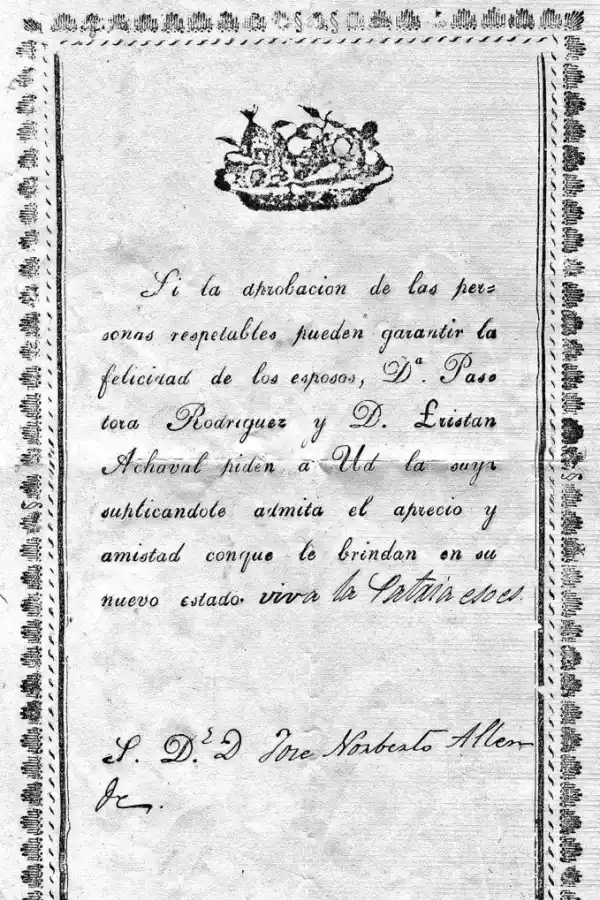 Si la aprobacion de las per=
sonas respetables pueden garantir la
felicidad de los esposos, D.ª Pas=
tora Rodriguez y D. Tristan
Achaval piden á Ud la suya
suplicandole admita el aprecio y
amistad conque le brindan en su
nuevo estado. viva la Patria eso es.
S. D.ʳ D Jose Norberto Allen
de.